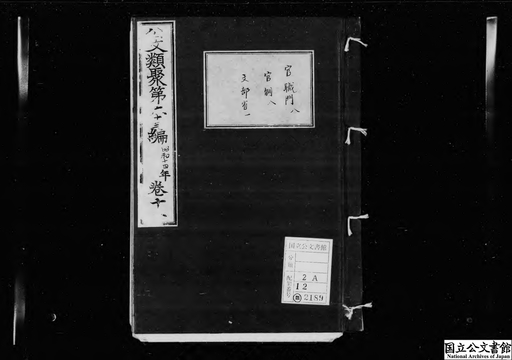 公文類聚第六十三編昭和十四年卷十
官職門八
官制八
文部省一
国立公文書館
分類
配架番号
2A
12
類2189
国立公文書館
National Archives of Japan